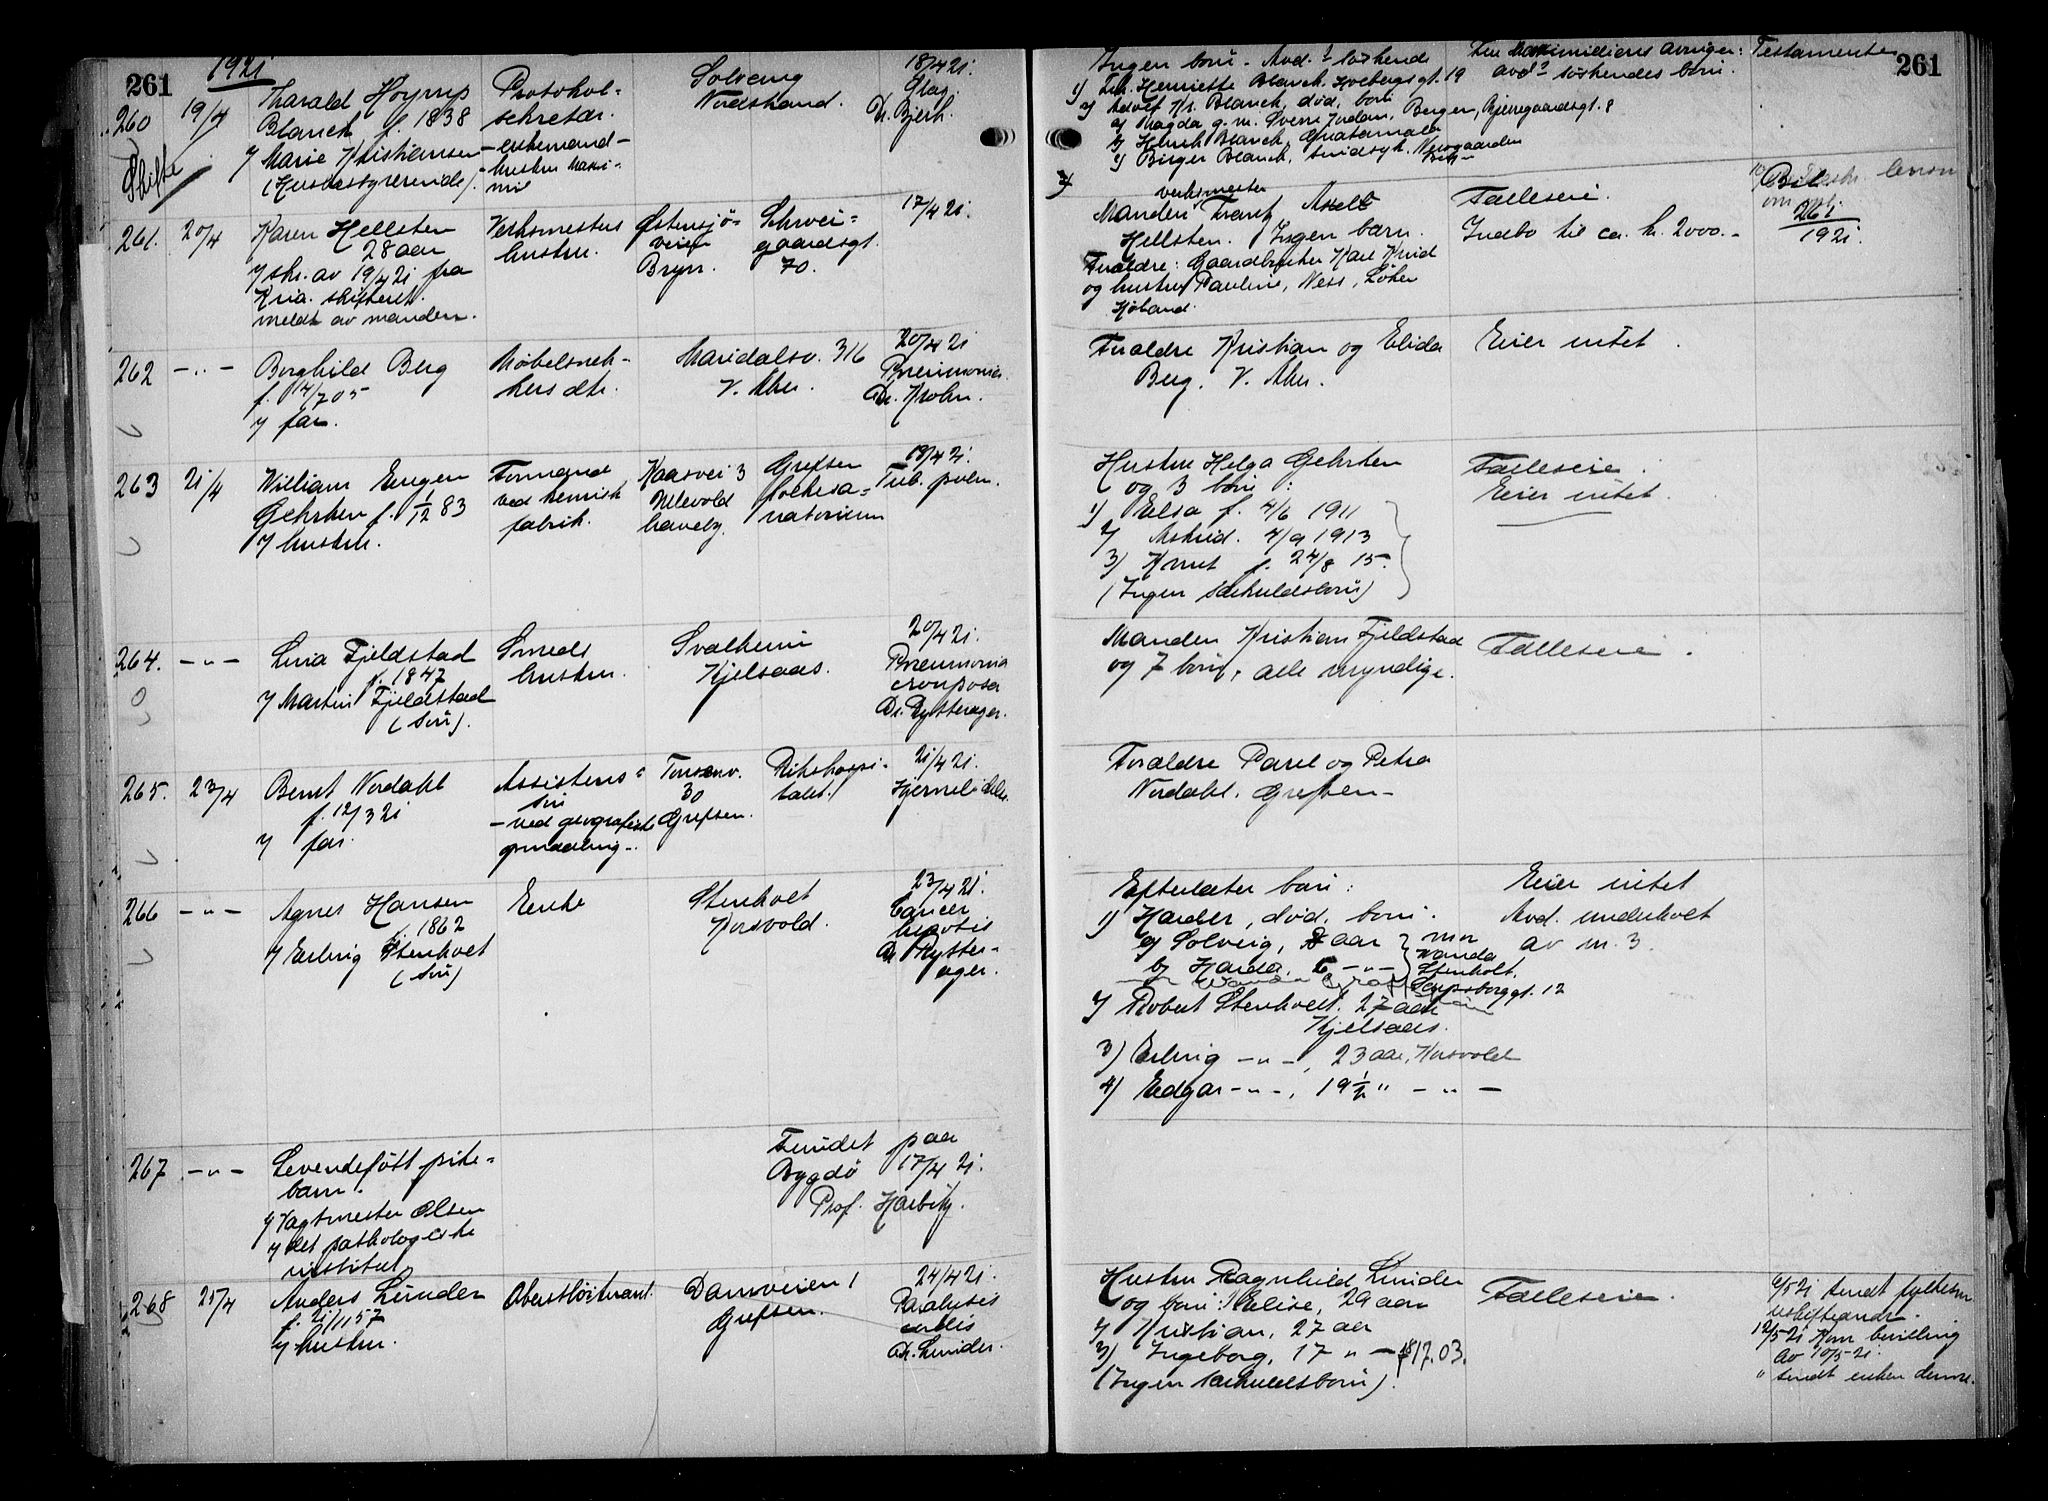 261
1921
260
19/4
Tharald Høyrup
Blanck f. 1838
v/ Marie Kristiansen
(Husbestyrerinde).
Skifte
Protokol-
sekretær.
-enkemand-
Solveng
Nordstrand.
18/4 21.
Slag.
Dr. Bjerk.
261.
20/4
Karen Hellsten
28 aar
v/ skr. av 19/4 21 fra
Kria. skifteret.
meldt av manden.
Verksmesters
hustru.
Østensjø-
veien
Bryn.
Schwei-
gaardsgt.
70.
17/4 21.
262
-"-
Borghild Berg
f. 14/7 05
v/ far.
Møbelsnek-
kers dtr.
Maridalsv. 316
V. Aker.
20/4 21
Pneumonia
Dr. Krohn.
263
21/4
William Eugen
Gehrken f. 1/12 83
v/ hustru.
Formand
ved kemisk
fabrik.
Kaasvei 3
Ullevold
haveby.
Grefsen
folkesa-
natorium
18/4 21.
Tub. pulm.
264.
-"-
Lina Fjeldstad
f. 1847
v/ Martin Fjeldstad
(søn).
Smeds
hustru.
Solheim
Kjelsaas.
20/4 21.
Pneumonia
crouposa
Dr. Rytterager.
265.
23/4
Bernt Nordahl
f. 12/3 21
v/ far.
Assistents-
søn
-ved geografiske
opmaaling-.
30
Grefsen.
Rikshospi-
talet.
21/4 21.
266
-"-
Agnes Hansen
f. 1862
v/ Erling Stenholt
(søn)
Enke
Stenholt
Korsvold.
23/4 21.
Cancer
hepatis
Dr. Rytter-
ager.
267
-"-
Levendefött pike-
barn.
v/ Vagtmester Olsen
v/ det pathologiske
institut
Fundet paa
Bygdö 17/4 21.
Prof. Harbitz.
268
25/4
Anders Linder
f. 21/11 57
v/ hustru.
Oberstløitnant.
Damveien 1
Grefsen.
24/4 21.
Paralysis
cordis
Dr. Linder.
261
Ingen børn - Avd.s søskende
1) Frk. Henriette Blanck. Holbergsgt. 19
2) Adolf Kr. Blanck, død, børn
a) Magda g. m. Sverre Jordan, Bergen, Bjerregaardsgt. 8
b) Henrik Blanck, Guatemala
c) Birger Blanck, sindssyk.
avd.s søskendes børn.
Testamente
verksmester
Manden Frantz Axel
Hellsten. Ingen barn.
Forældre: Gaardbruker Karl Knud
og hustru Pauline, Ness, Løken
Høland.
Fælleseie.
Indbo til ca. kr. 2000.-
261
1921.
Forældre Kristian og Elida
Berg. V. Aker.
Eier intet.
Hustru Helga Gehrken
og 3 børn:
1) Elsa f. 4/6 1911
2) Astrid. 4/9 1913
3) Knut f. 24/8 15.
(Ingen særkuldsbørn)
Fælleseie.
Eier intet.
Manden Kristian Fjeldstad
og 7 børn, alle myndige.
Fælleseie.
Forældre Parel og Petra
Nordahl. Grefsen-
Efterlater børn:
1) Harder, død. børn.
a) Solveig, 8 aar } mor
b) Harda, 6 -"- } Wanda
Stenholt,
Sarpsborggt. 12
2) Robert Stenholt. 27 aar
Kjelsaas.
3) Erling -"-, 23 aar, Korsvold
4) Edgar -"-, 19 1/2 " -"-
Eier intet
Avd. underholt
av nr. 3.
Hustru Ragnhild Linder
og børn: 1) Elise, 29 aar
2) Kristian, 27 aar
3) Ingeborg, 17 " - f. 8/7.03.
(Ingen særkuldsbørn).
Fælleseie.
6/5 21 sendt fylkesm
uskifteandr.
12/5 21 Kom bevilling
av 10/5 21.
" sendt enken denne.